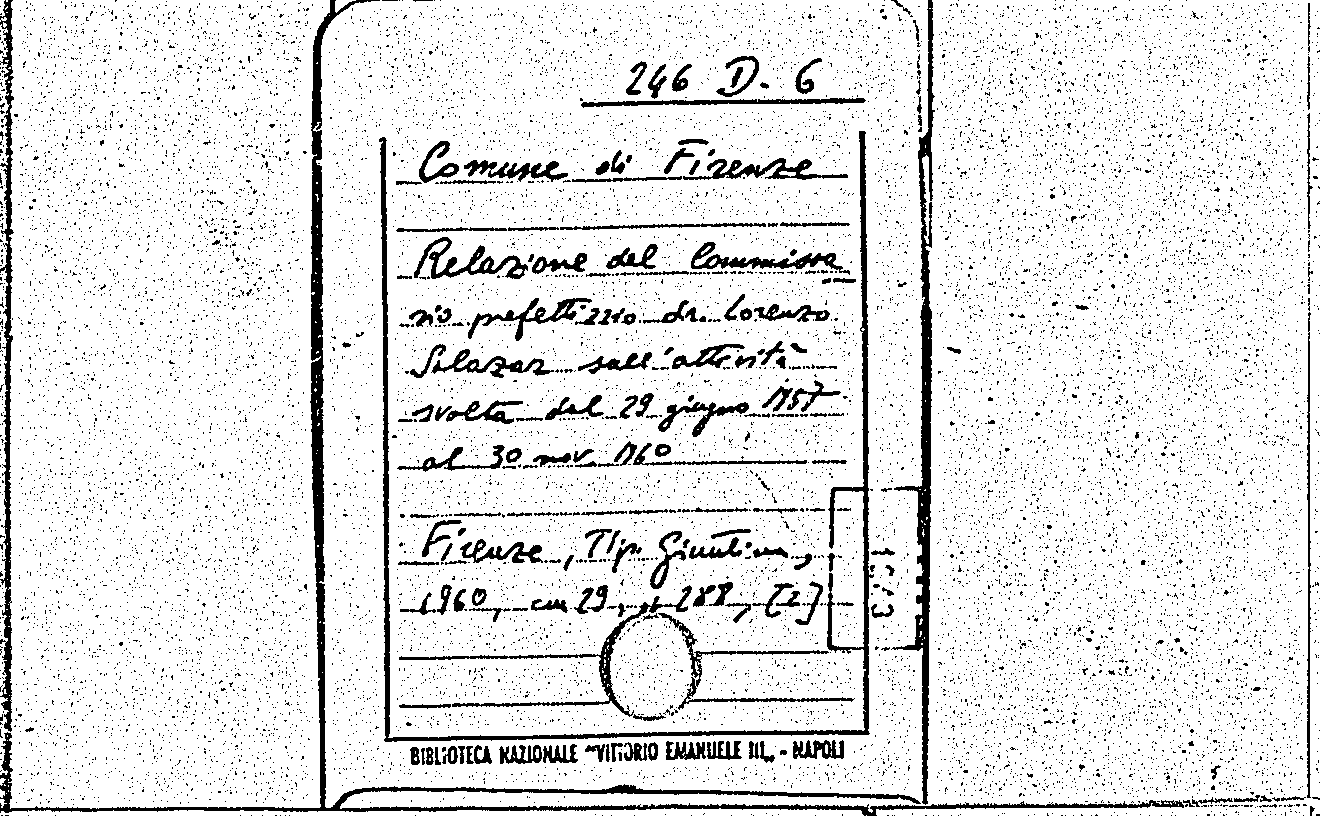 246 D. 6
Comune di Firenze
Relazione del Commissa
rio prefettizio dr. Lorenzo
Salazar sull'attività
svolta dal 29 giugno 1957
al 30 nov. 1960
Firenze, Tip. Giuntina,
1960, cm 29, p. 288, [2]
BIBLIOTECA NAZIONALE "VITTORIO EMANUELE III„ - NAPOLI